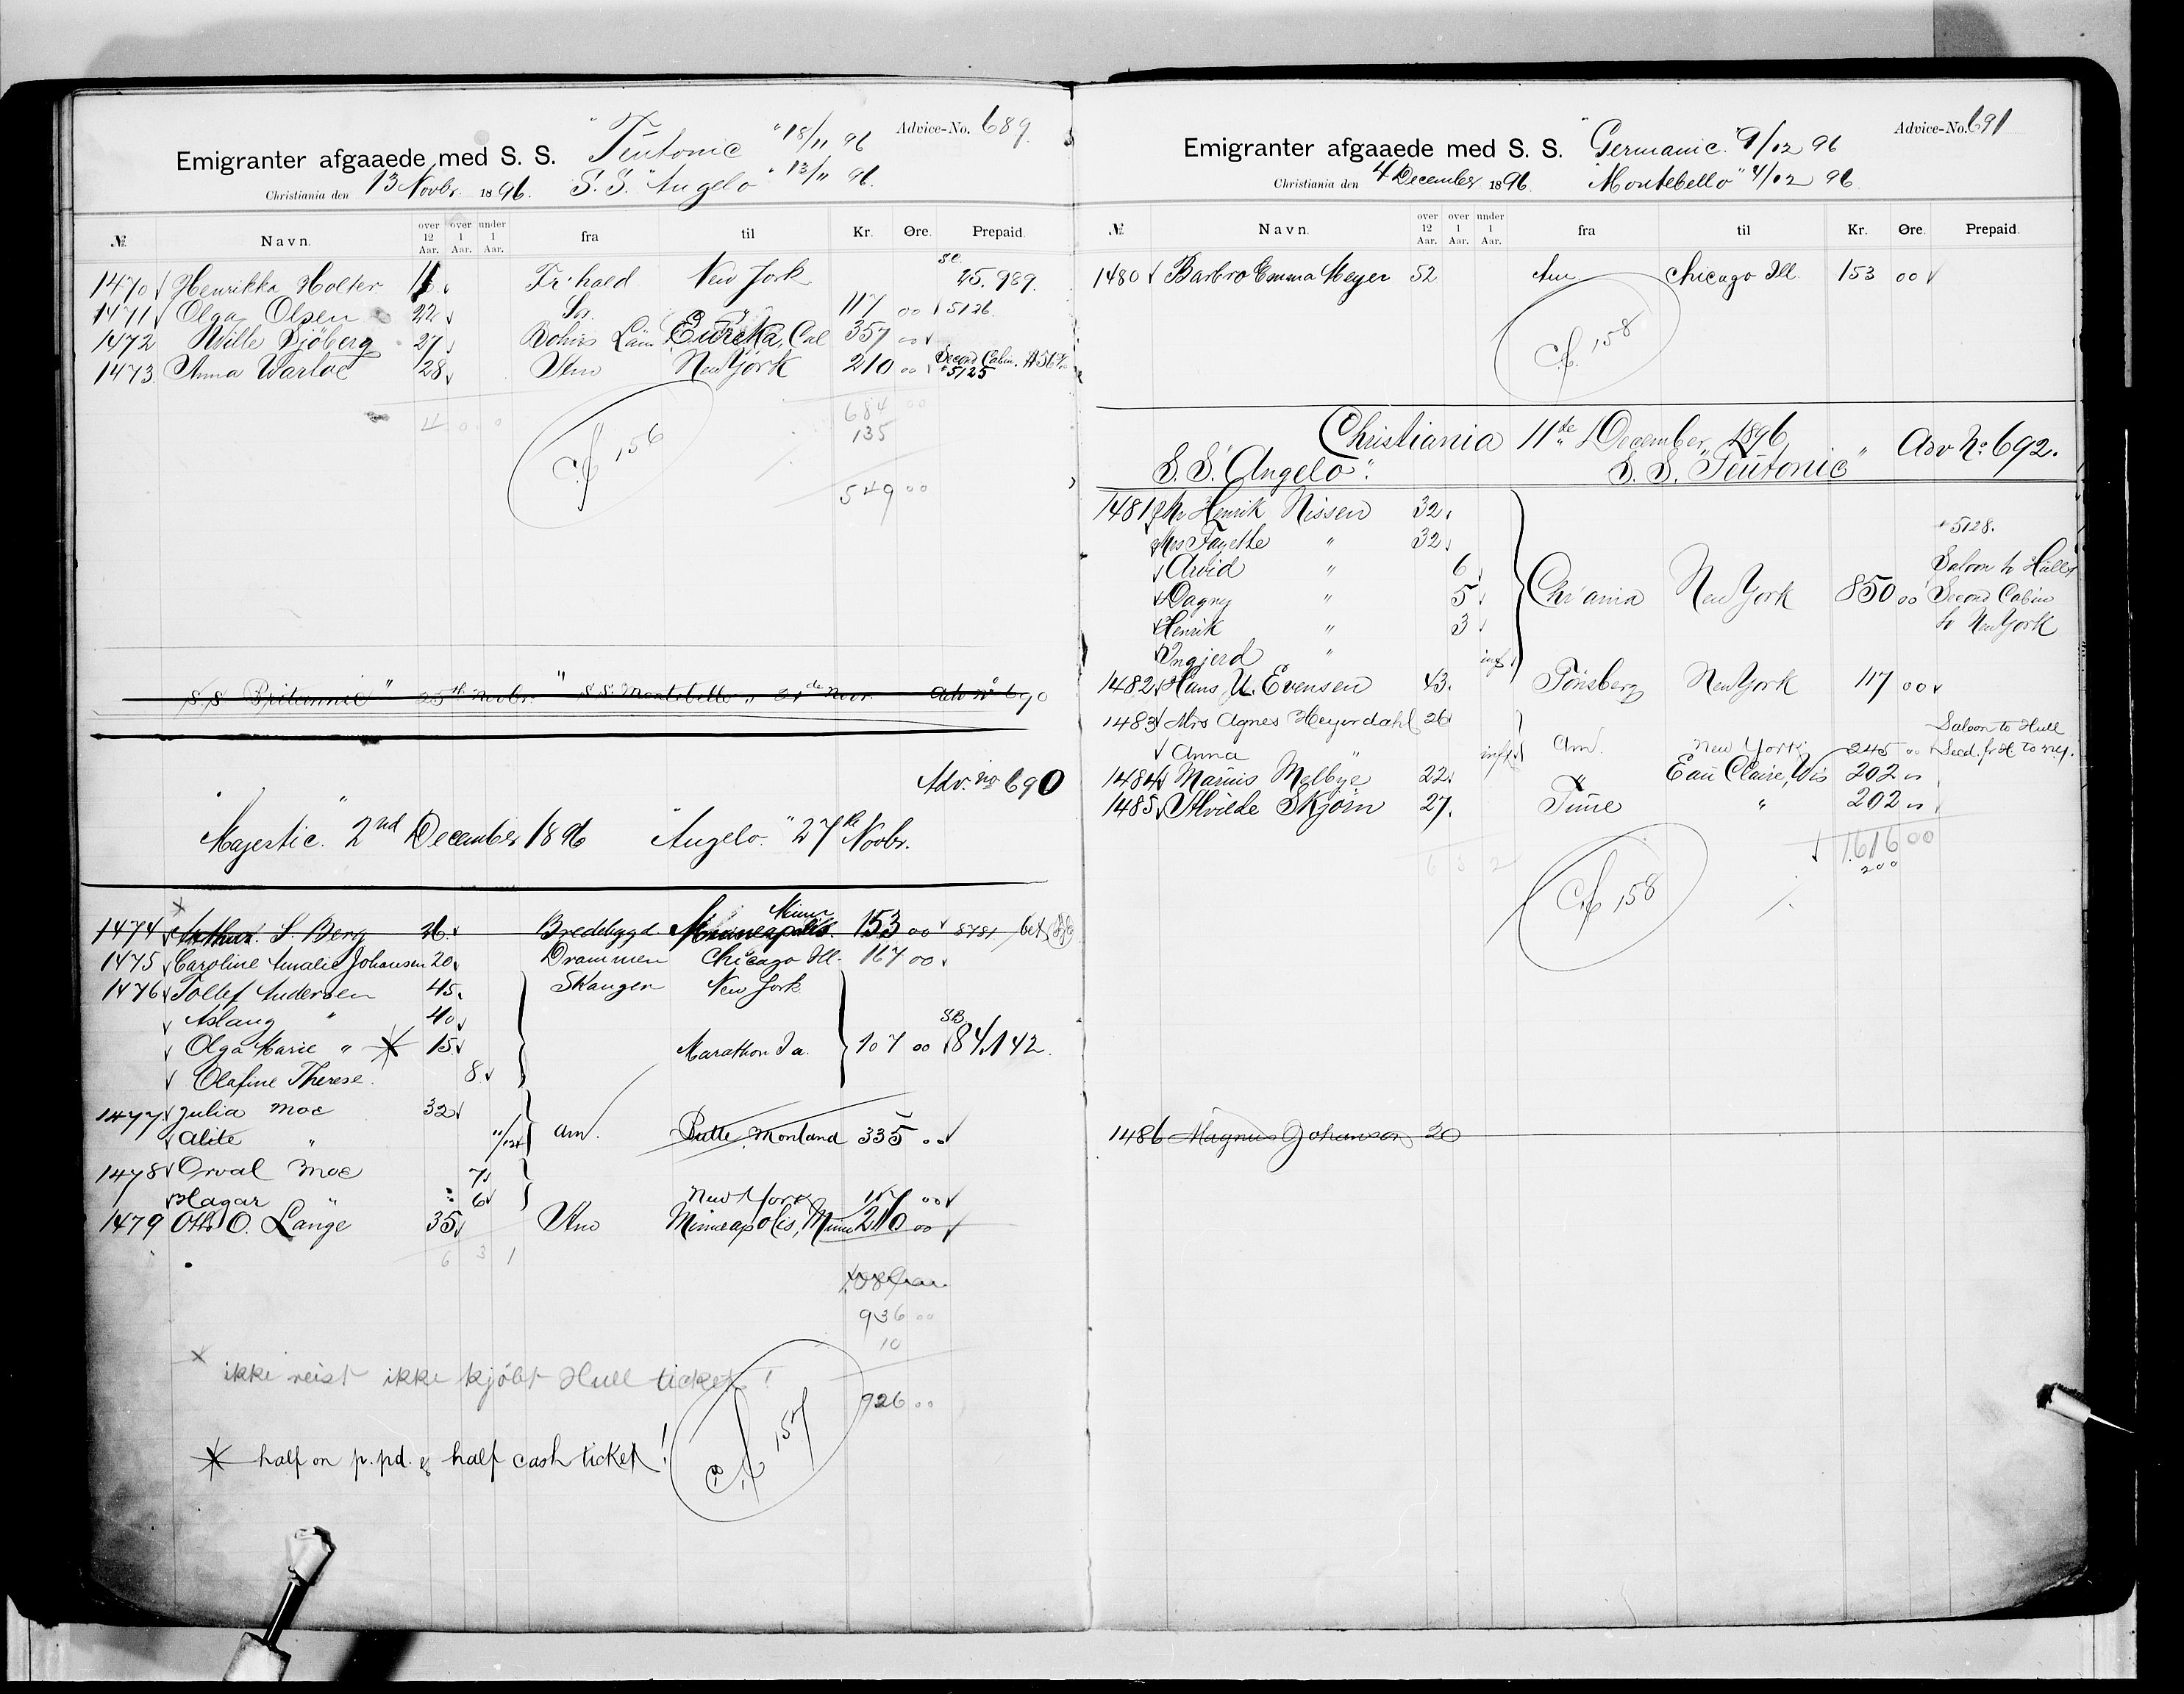 Emigranter afgaaede med S. S. "Teutonic" 18/11 96 Advice-No. 689.
Christiania den 13 Novbr. 1896. S. S. "Angelo" 13/11 96.
№ Navn. over 12 Aar. over 1 Aar. under 1 Aar. fra til Kr. Øre. Prepaid.
1470 Henrikka Holter Fr'hald New York 25.989.
1471 Olga Olsen 22 117 00 5126
1472 Wille Sjöberg 27 Bohus Län Eureka, Cal 357 00
1473. Anna Warloe 28 Ano New York 210 00 Second Cabin. 5125
4 0 0 684 00
135
cf 156
549 00
S/S Britannic" 25th Novbr. "S.S. Montebello" 21de Novr. Adv no 690
Adv. no 690
"Majestic." 2nd December 1896 "Angelo." 27de Novbr.
1474 Arthur S. Berg 26 Bredebygd Minneapolis. Minn 153 00 8781
1475 Caroline Amalie Johansen 20 Drammen Chicago Ill. 167 00
1476 Tollef Andersen 45 Skauger New York
Aslaug " 40
Olga Marie " 15 Marathon Ia. 107 00 84,142.
Olafine Therese. 8
1477 Julia Moe 32
Alite " 11/12 Am. Butte, Montana 335 00
1478 Orval Moe 7
Hagar " 6 New York 117 00
1479 Otto O. Lange 35 Ano Minneapolis, Minn 210 00
6 3 1
936 00
10
× ikke reist ikke kjöbt Hull ticket!
926 00
half on p.pd. & half cash ticket!
cf 157
Emigranter afgaaede med S. S. "Germanic." 9/12 96 Advice-No. 691
Christiania den 4 December 1896. "Montebello" 4/12 96
№ Navn. over 12 Aar. over 1 Aar. under 1 Aar. fra til Kr. Øre. Prepaid.
1480 Barbro Emma Meyer 52 Am Chicago Ill 153 00
cf. 158
Christiania 11te December, 1896, Adv No: 692.
S. S. "Angelo". S. S. "Teutonic"
1481 Mr Henrik Nissen 32
5128.
Mrs Fayette " 32
Arvid " 6 Saloon to Hull
Dagny " 5 Chr'ania New York 850 00 Second Cabin
Henrik " 3 to New York
Ingjerd " inf
1482 Hans U. Evensen 43. Tönsberg New York 117 00
1483 Mrs Agnes Heyerdahl 26 Saloon to Hull
Anna " inft Am. New York 245 00 Secd. fr H to N.Y.
1484 Marius Melbye 22. " Eau Claire, Wis 202 "
1485 Alvilde Skjörn 27. Tune " 202 "
6 3 2 1616 00
200
cf 158
1486 Magnus Johanson 20